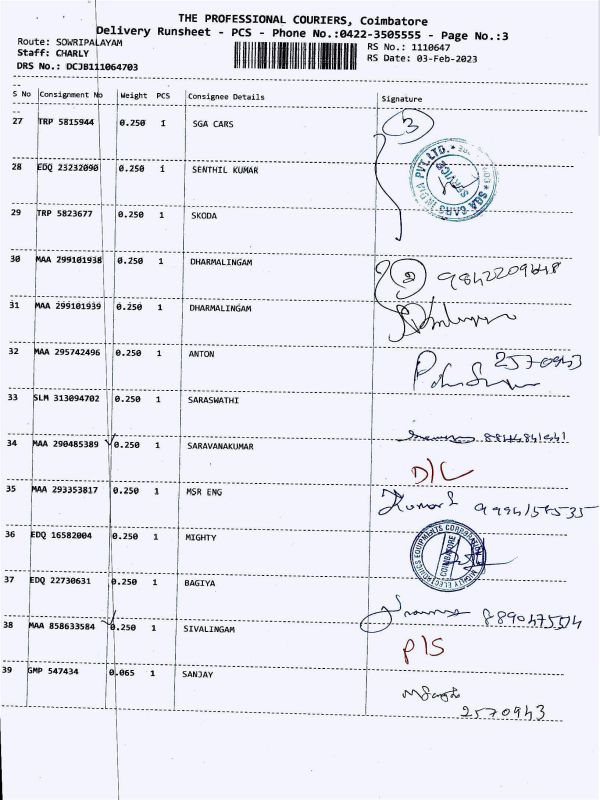 THE PROFESSIONAL COURIERS, Coimbatore
Delivery Runsheet - PCS - Phone No.:0422-3505555 - Page No.:3
Route: SOWRIPALAYAM
Staff: CHARLY
DRS No.: DCJB111064703
RS No.: 1110647
RS Date: 03-Feb-2023
S No Consignment No Weight PCS Consignee Details Signature
27 TRP 5815944 0.250 1 SGA CARS 3
SGA CARS INDIA PVT.LTD.
SERVICE
28 EDQ 23232090 0.250 1 SENTHIL KUMAR
29 TRP 5823677 0.250 1 SKODA
30 MAA 299101938 0.250 1 DHARMALINGAM 2 9842209648
31 MAA 299101939 0.250 1 DHARMALINGAM
32 MAA 295742496 0.250 1 ANTON 2570943
33 SLM 313094702 0.250 1 SARASWATHI
34 MAA 290485389 0.250 1 SARAVANAKUMAR D/L
35 MAA 293353817 0.250 1 MSR ENG
36 EDQ 16582004 0.250 1 MIGHTY
MIGHTY ELECTRONICS EQUIPMENTS CORPORATION
COIMBATORE
37 EDQ 22730631 0.250 1 BAGIYA 8890475574
38 MAA 858633584 0.250 1 SIVALINGAM P/S
39 GMP 547434 0.065 1 SANJAY
2570943